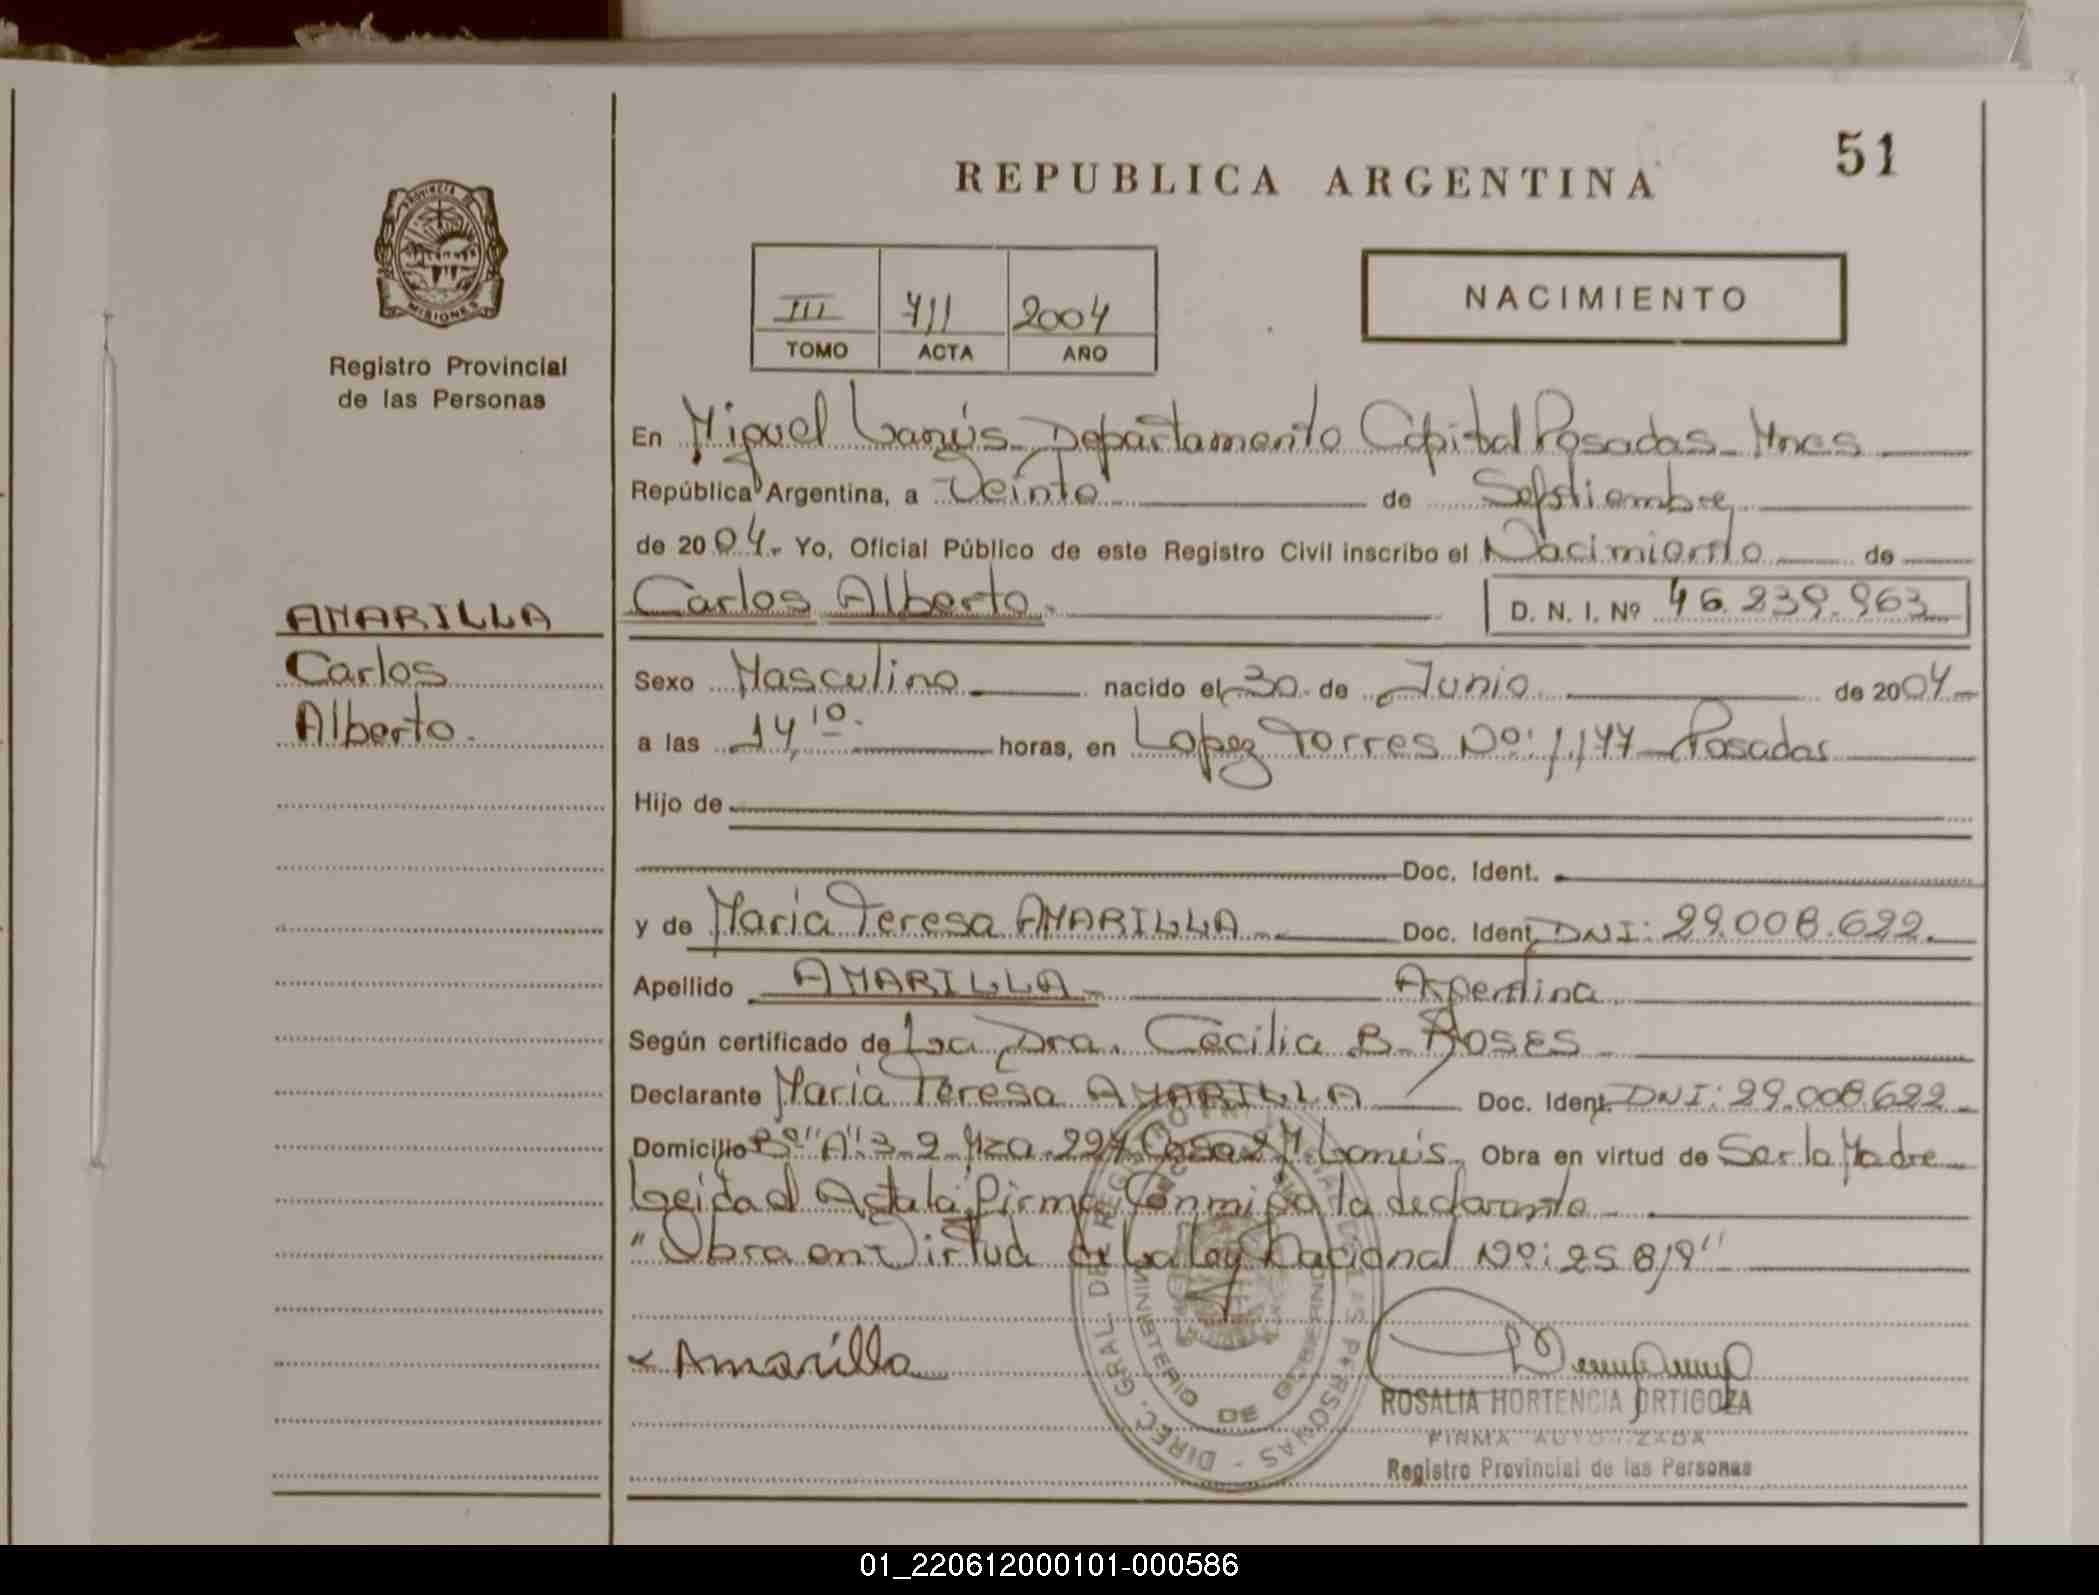 51
REPUBLICA ARGENTINA
PROVINCIA DE
MISIONES
Registro Provincial
de las Personas
III 711 2004
TOMO ACTA AÑO
NACIMIENTO
En Miguel Lanús - Departamento Capital Posadas - Mnes
República Argentina, a Veinte de Septiembre
de 2004.- Yo, Oficial Público de este Registro Civil inscribo el Nacimiento de
AMARILLA
Carlos
Alberto.
Carlos Alberto. D. N. I. Nº 46.239.963
Sexo Masculino nacido el 30 de Junio de 2004
a las 14,10. horas, en Lopez Torres Nº: 1.177 - Posadas
Hijo de
Doc. Ident.
y de Maria Teresa AMARILLA Doc. Ident. DNI: 29.008.622.
Apellido AMARILLA - Argentina
Según certificado de La Dra. Cecilia B. Roses
Declarante Maria Teresa AMARILLA Doc. Ident. DNI: 29.008.622
Domicilio Bº "A" 3-2 Mza. 227 Casa 2 M. Lanús Obra en virtud de Ser la Madre
Leida el Acta la firma Conmigo la declarante
"Obra en Virtud de la Ley Nacional Nº: 25 819"
x Amarilla
DIREC. GRAL. DE PERSONAS
MINISTERIO DE GOBIERNO
ROSALIA HORTENCIA ORTIGOZA
FIRMA AUTORIZADA
Registro Provincial de las Personas
01_220612000101-000586